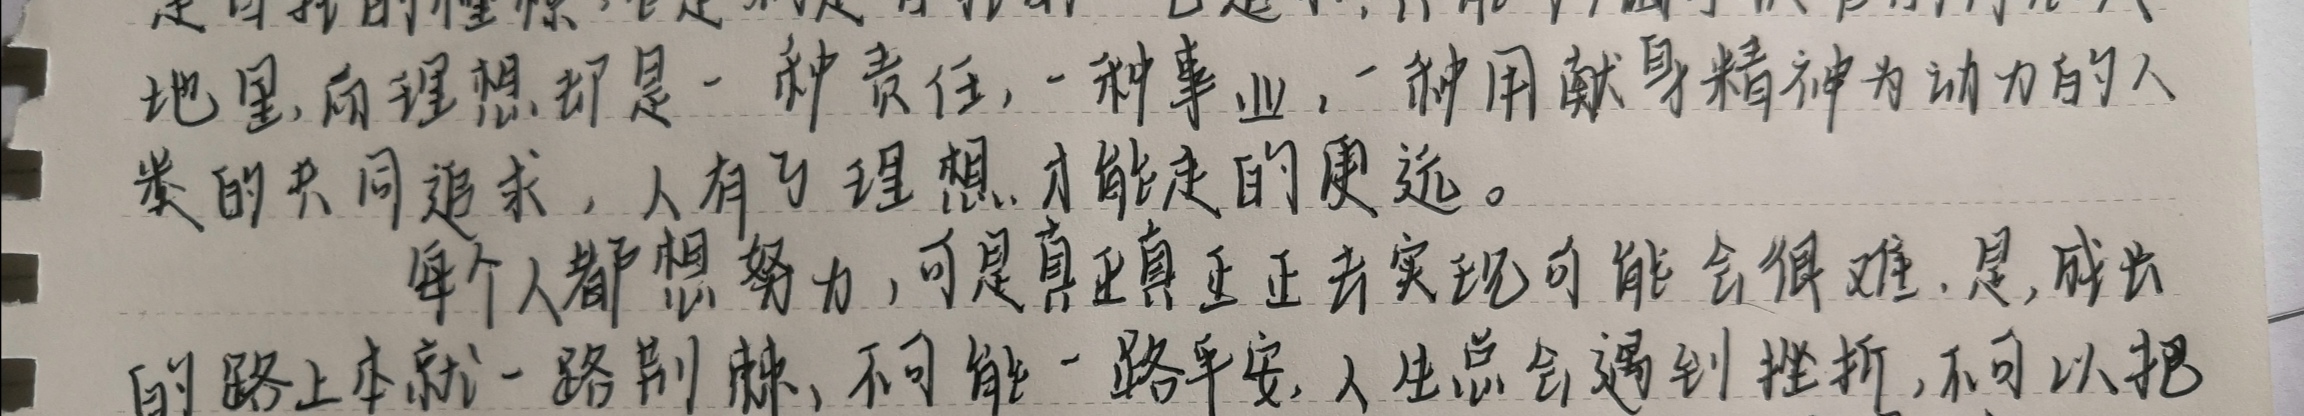 地里,而理想却是一种责任,一种事业,一种用献身精神为动力的人
类的共同追求,人有了理想才能走的更远。
每个人都想努力,可是真正真正正去实现可能会很难.是,成长
的路上本就一路荆棘、不可能一路平安,人生总会遇到挫折,不可以把